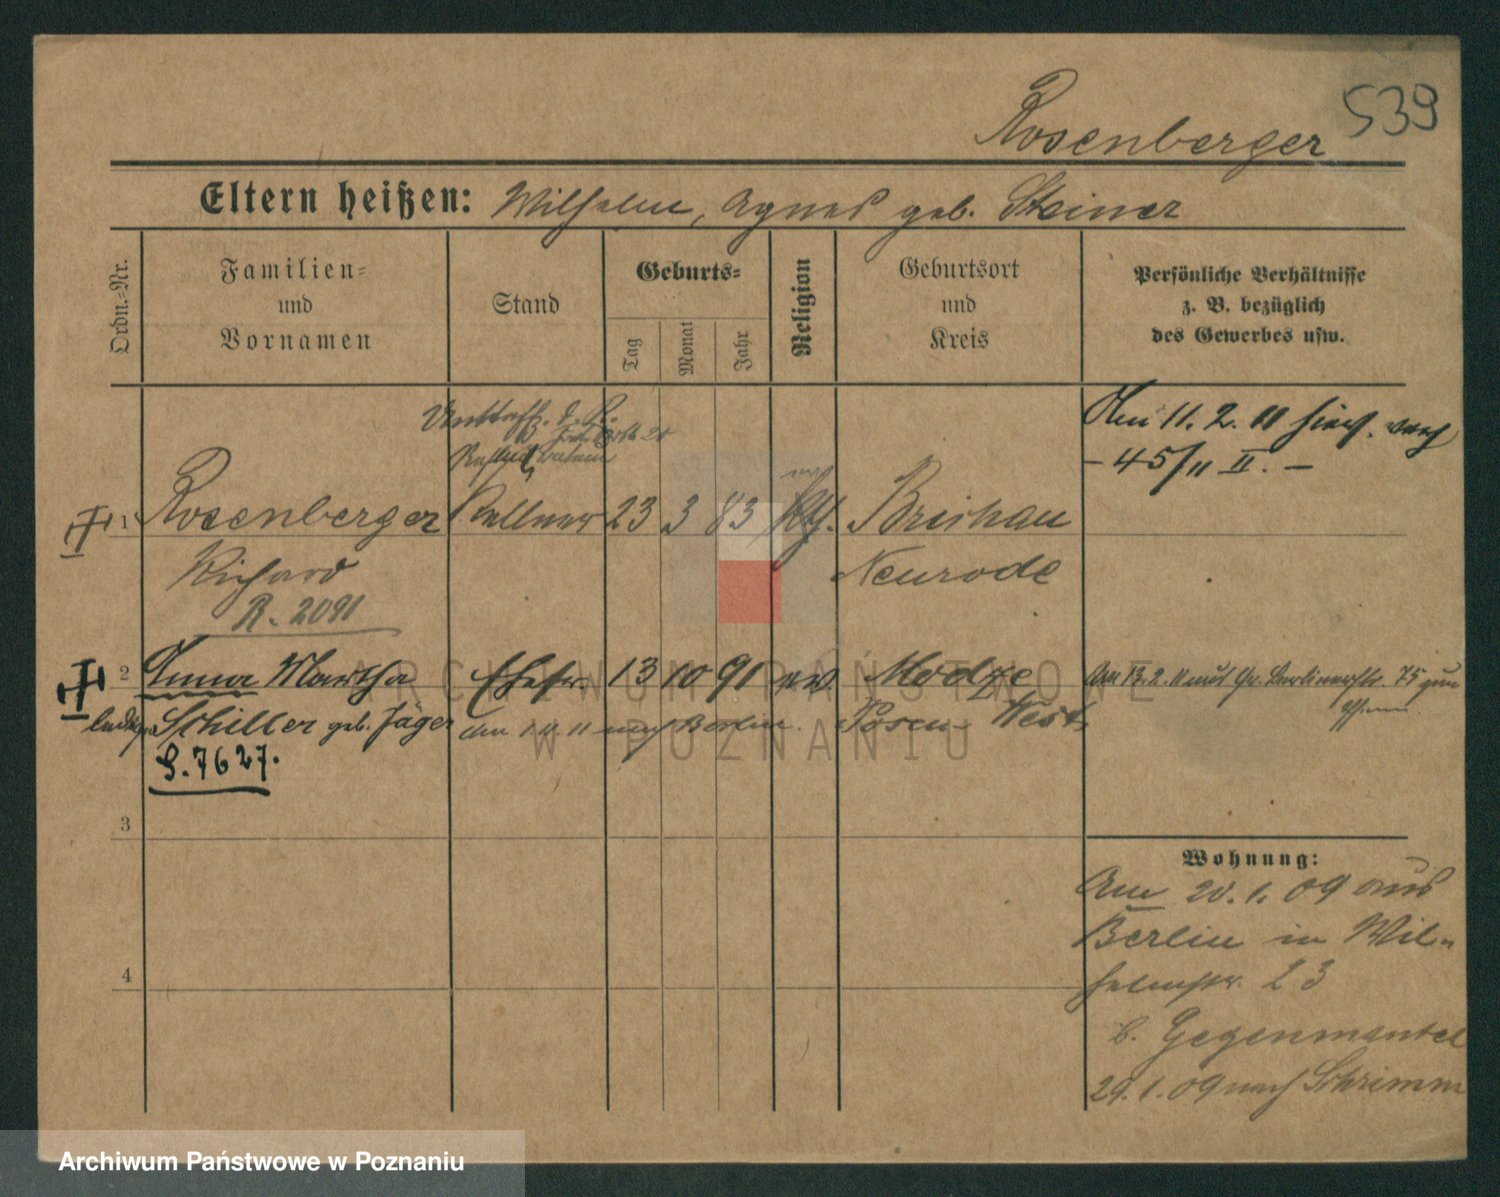 Rosenberger 539
Eltern heißen: Wilhelm, Agnes geb. Steiner
Ordn.=Nr.
Familien=
und
Vornamen
Stand
Geburts=
Tag
Monat
Jahr
Religion
Geburtsort
und
Kreis
Persönliche Verhältnisse
z. B. bezüglich
des Gewerbes usw.
Am 11. 2. 11
- 45/11 II. -
1 Rosenberger Kellner 23 3 83 kth. Brishau
Richard Neurode
R. 2091
2 Anna Martha Ehefr. 13 10 91 ev. Modze
Schiller geb. Jäger am 1.4.11 nach Berlin. Posen-West
S. 7627.
3
Wohnung:
Am 20. 1. 09 aus
Berlin in Wil-
helmstr. 23
4
b. Gegenmantel
29. 1. 09 nach Schrimm
ARCHIWUM PAŃSTWOWE
W POZNANIU
Archiwum Państwowe w Poznaniu